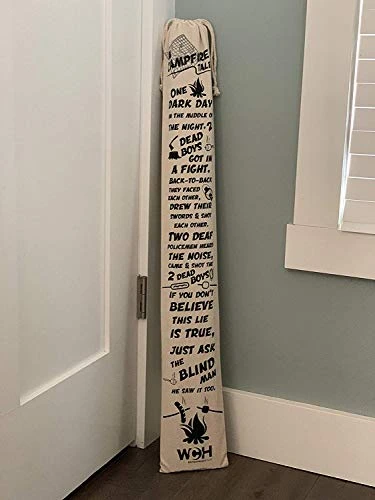 CAMPFIRE
TALE
ONE
DARK DAY
IN THE MIDDLE OF
THE NIGHT, 2
DEAD
BOYS
GOT IN
A FIGHT.
BACK-TO-BACK
THEY FACED
EACH OTHER,
DREW THEIR
SWORDS & SHOT
EACH OTHER.
TWO DEAF
POLICEMEN HEARD
THE NOISE,
CAME & SHOT THE
2 DEAD BOYS
IF YOU DON'T
BELIEVE
THIS LIE
IS TRUE,
JUST ASK
THE BLIND
MAN
HE SAW IT TOO.
WCH